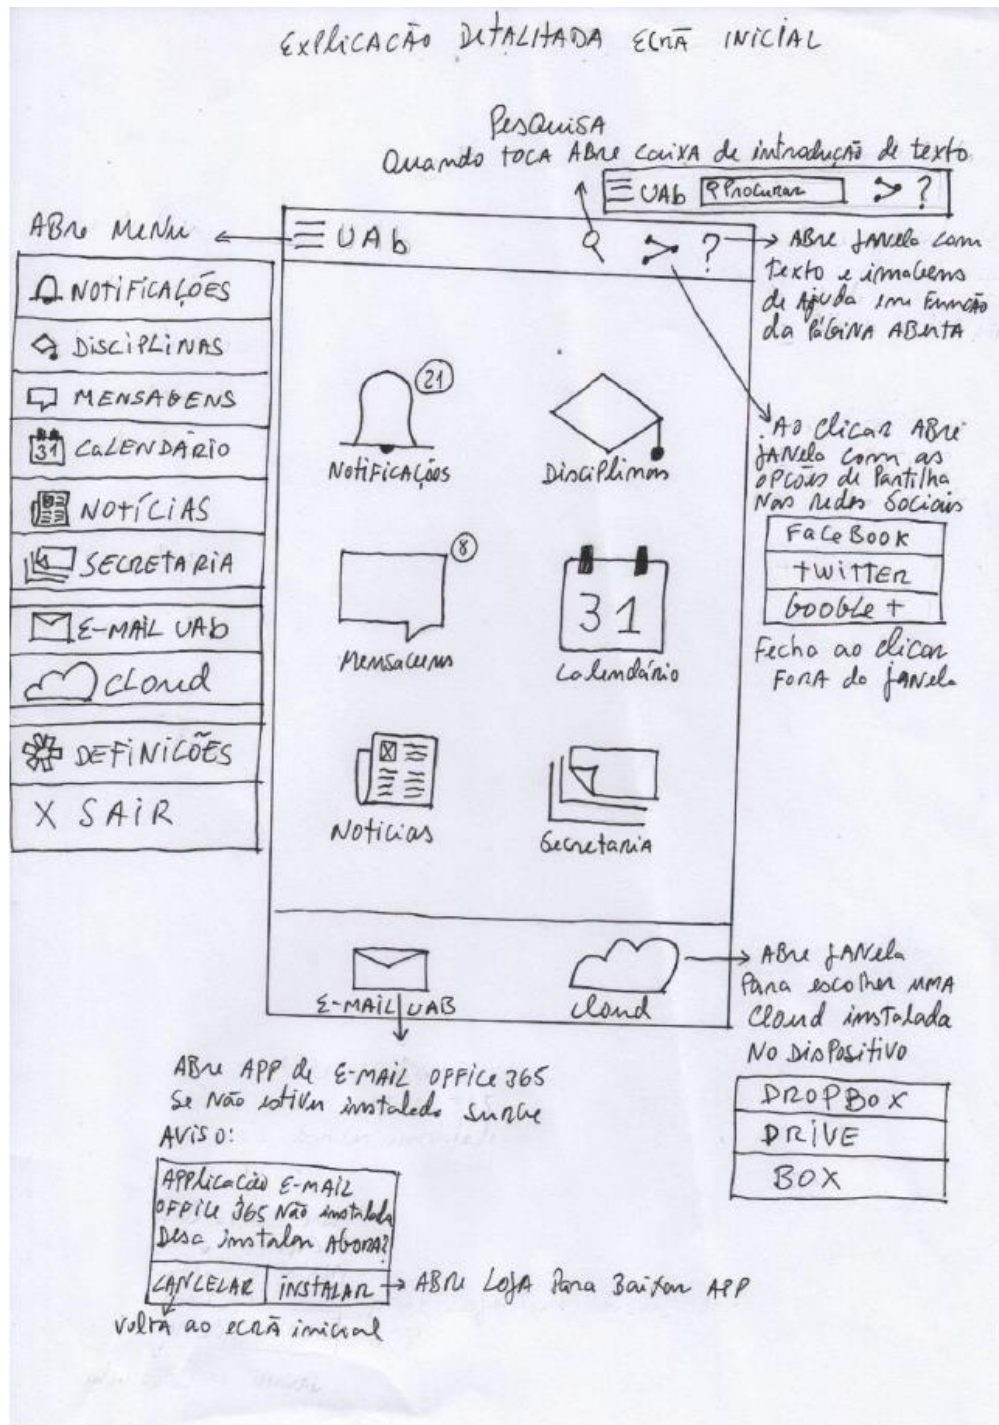 EXPLICAÇÃO DETALHADA ECRÃ INICIAL
PESQUISA
Quando TOCA ABRE CAIXA de introdução de texto
UAb Procurar ?
ABRE MENU
UAb ?
NOTIFICAÇÕES
DISCIPLINAS
MENSAGENS
31 CALENDÁRIO
NOTÍCIAS
SECRETARIA
E-MAIL UAb
Cloud
DEFINIÇÕES
X SAIR
ABRE JANELA com
texto e imagens
de AJUDA em FUNÇÃO
da PÁGINA ABERTA
21
Notificações
Disciplinas
8
Mensagens
31
Calendário
Noticias
Secretaria
E-MAIL UAB
Cloud
Ao clicar ABRE
JANELA com as
OPÇÕES de Partilha
Nas redes Sociais
FACEBOOK
TWITTER
GOOGLE +
Fecha ao clicar
FORA da JANELA
ABRE JANELA
Para escolher UMA
Cloud instalada
NO DISPOSITIVO
DROPBOX
DRIVE
BOX
ABRE APP de E-MAIL OFFICE 365
Se Não estiver instalado SURGE
AVISO:
APPlicação E-MAIL
OFFICE 365 Não instalada
Desa instalar AGORA?
CANCELAR INSTALAR
ABRE LOJA Para Baixar APP
volta ao ecrã inicial